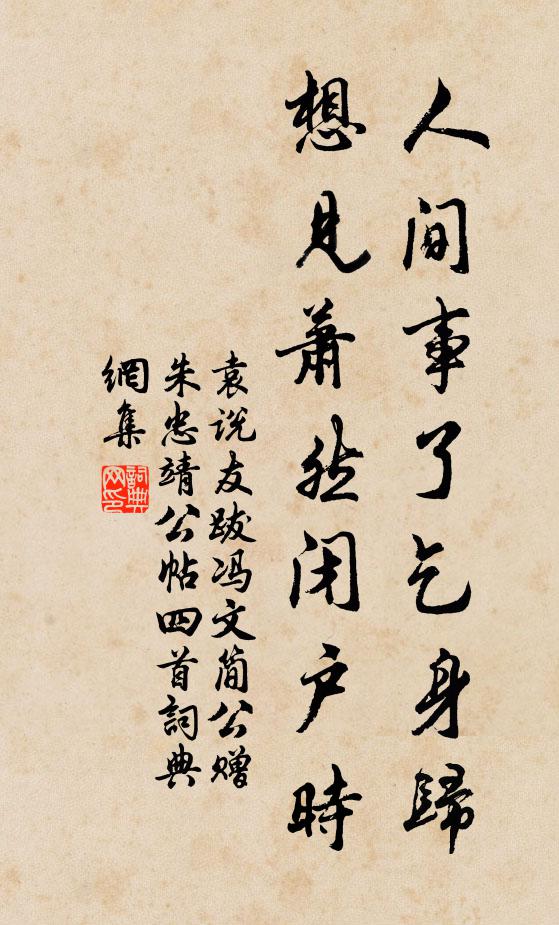 人间事了乞身歸
想見蕭然闭户時
袁说友跋冯文简公赠
朱忠靖公帖四首詞典
網集
詞典網印